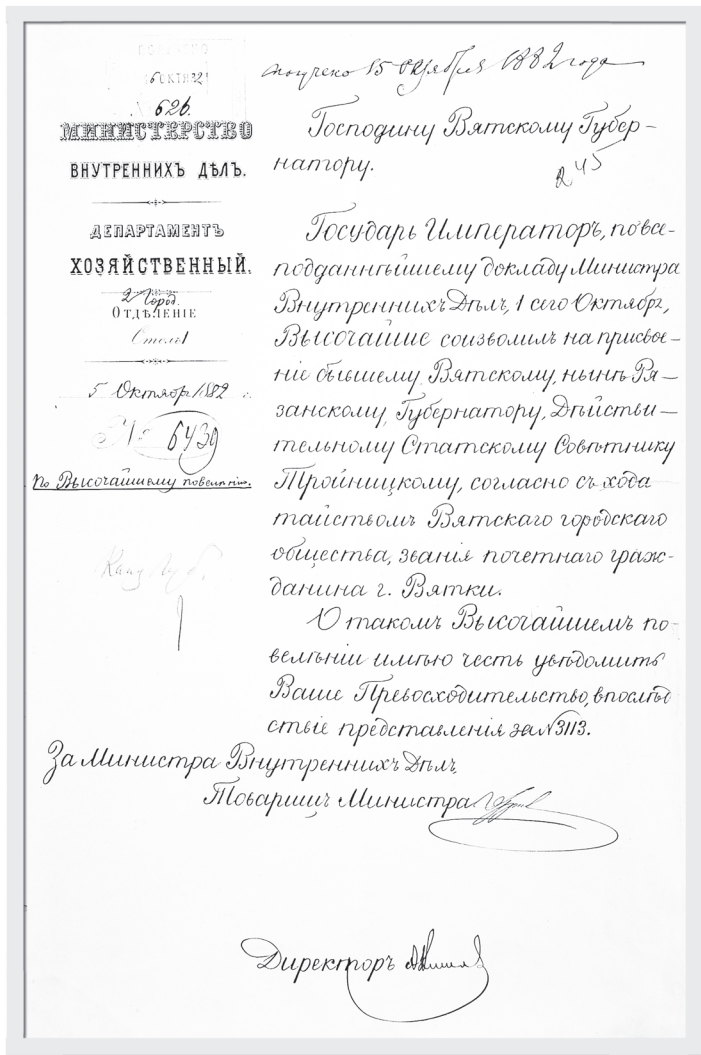 получено 15 октября 1882 года
5 ОКТЯ 82
№ 626.
МИНИСТЕРСТВО
ВНУТРЕННИХЪ ДѢЛЪ.
ДЕПАРТАМЕНТЪ
ХОЗЯЙСТВЕННЫЙ.
2 Город.
ОТДѢЛЕНІЕ
Столъ 1
5 Октября 1882
№ 6439
По Высочайшему повелѣнію.
Господину Вятскому Губер-
натору.
245
Государь Императоръ, по все-
подданнѣйшему докладу Министра
Внутреннихъ Дѣлъ, 1 сего Октября,
Высочайше соизволилъ на присвое-
ніе бывшему Вятскому, нынѣ Ря-
занскому, Губернатору, Дѣйстви-
тельному Статскому Совѣтнику
Тройницкому, согласно съ хода
тайствомъ Вятскаго городскаго
общества, званія почетнаго граж-
данина г. Вятки.
О такомъ Высочайшемъ по-
велѣніи имѣю честь увѣдомить
Ваше Превосходительство, впослѣд
ствіе представленія за № 3113.
За Министра Внутреннихъ Дѣлъ,
Товарищъ Министра
Директоръ